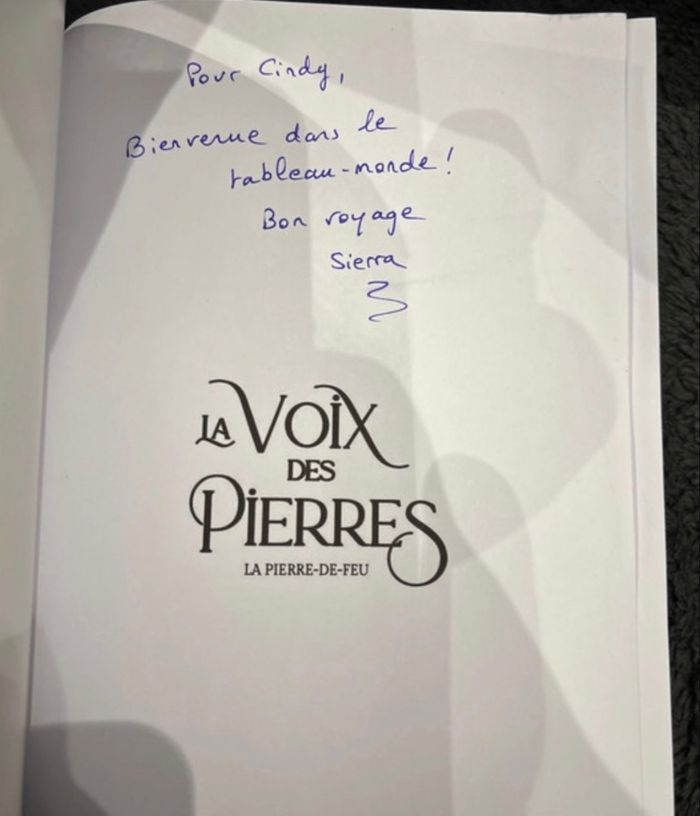 Pour Cindy,
Bienvenue dans le
tableau-monde !
Bon voyage
Sierra
LA VOIX
DES
PIERRES
LA PIERRE-DE-FEU